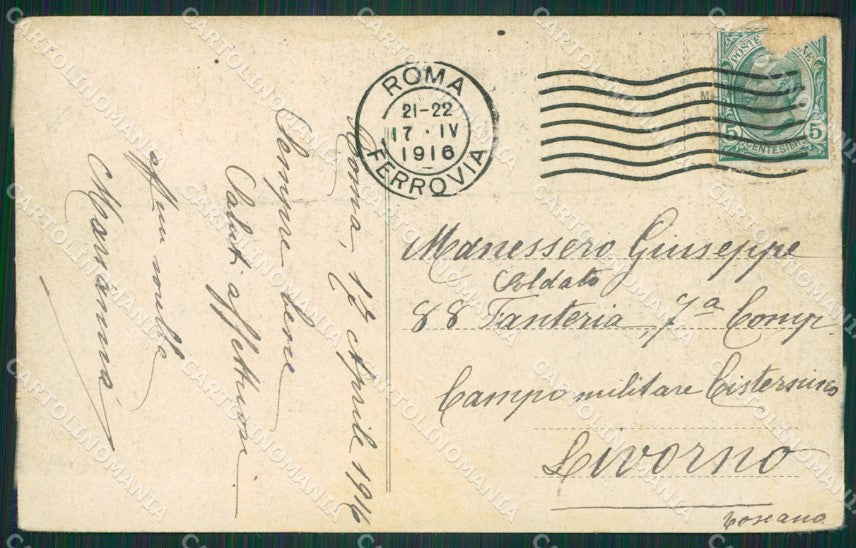 ROMA
21-22
17 · IV
1916
FERROVIA
POSTE
5 5
CENTESIMI
Roma, 17 Aprile 1916
Sempre bene
Saluti affettuosi
Marianna
Manessero Giuseppe
Soldato
88 Fanteria, 7a Comp
Campo militare Cisternino
Livorno
Toscana
CARTOLINOMANIA